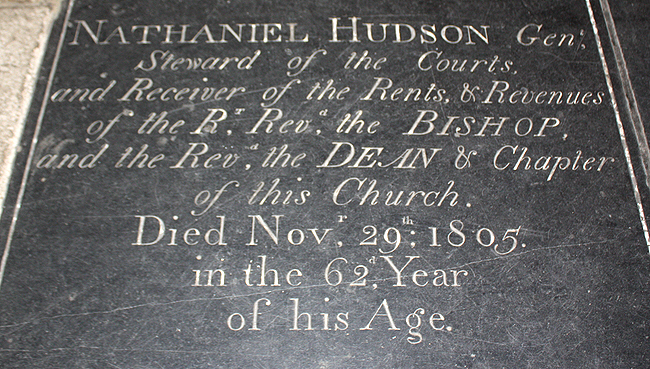 NATHANIEL HUDSON Gent.,
Steward of the Courts,
and Receiver of the Rents, & Revenues
of the Rt. Revd. the BISHOP,
and the Revd. the DEAN & Chapter
of this Church.
Died Novr. 29th: 1805.
in the 62d. Year
of his Age.